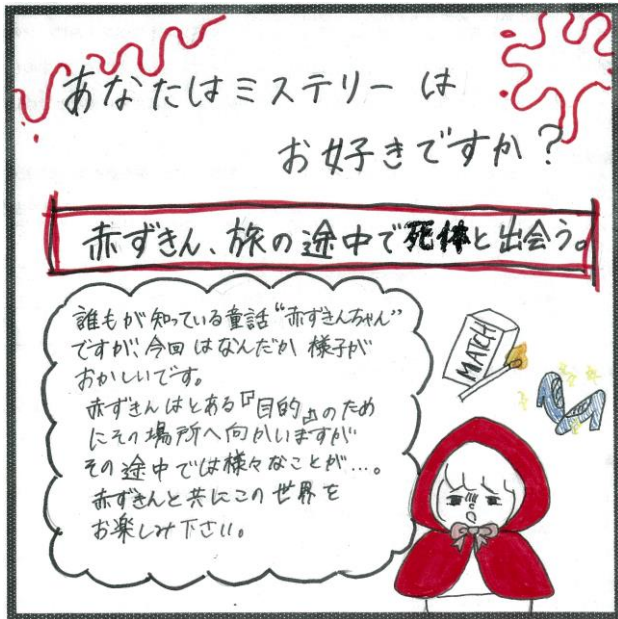 あなたはミステリーは
お好きですか？
赤ずきん、旅の途中で死体と出会う。
誰もが知っている童話“赤ずきんちゃん”
ですが、今回はなんだか様子が
おかしいです。
赤ずきんはとある『目的』のため
にその場所へ向かいますが
その途中では様々なことが…。
赤ずきんと共にこの世界を
お楽しみ下さい。
MATCH